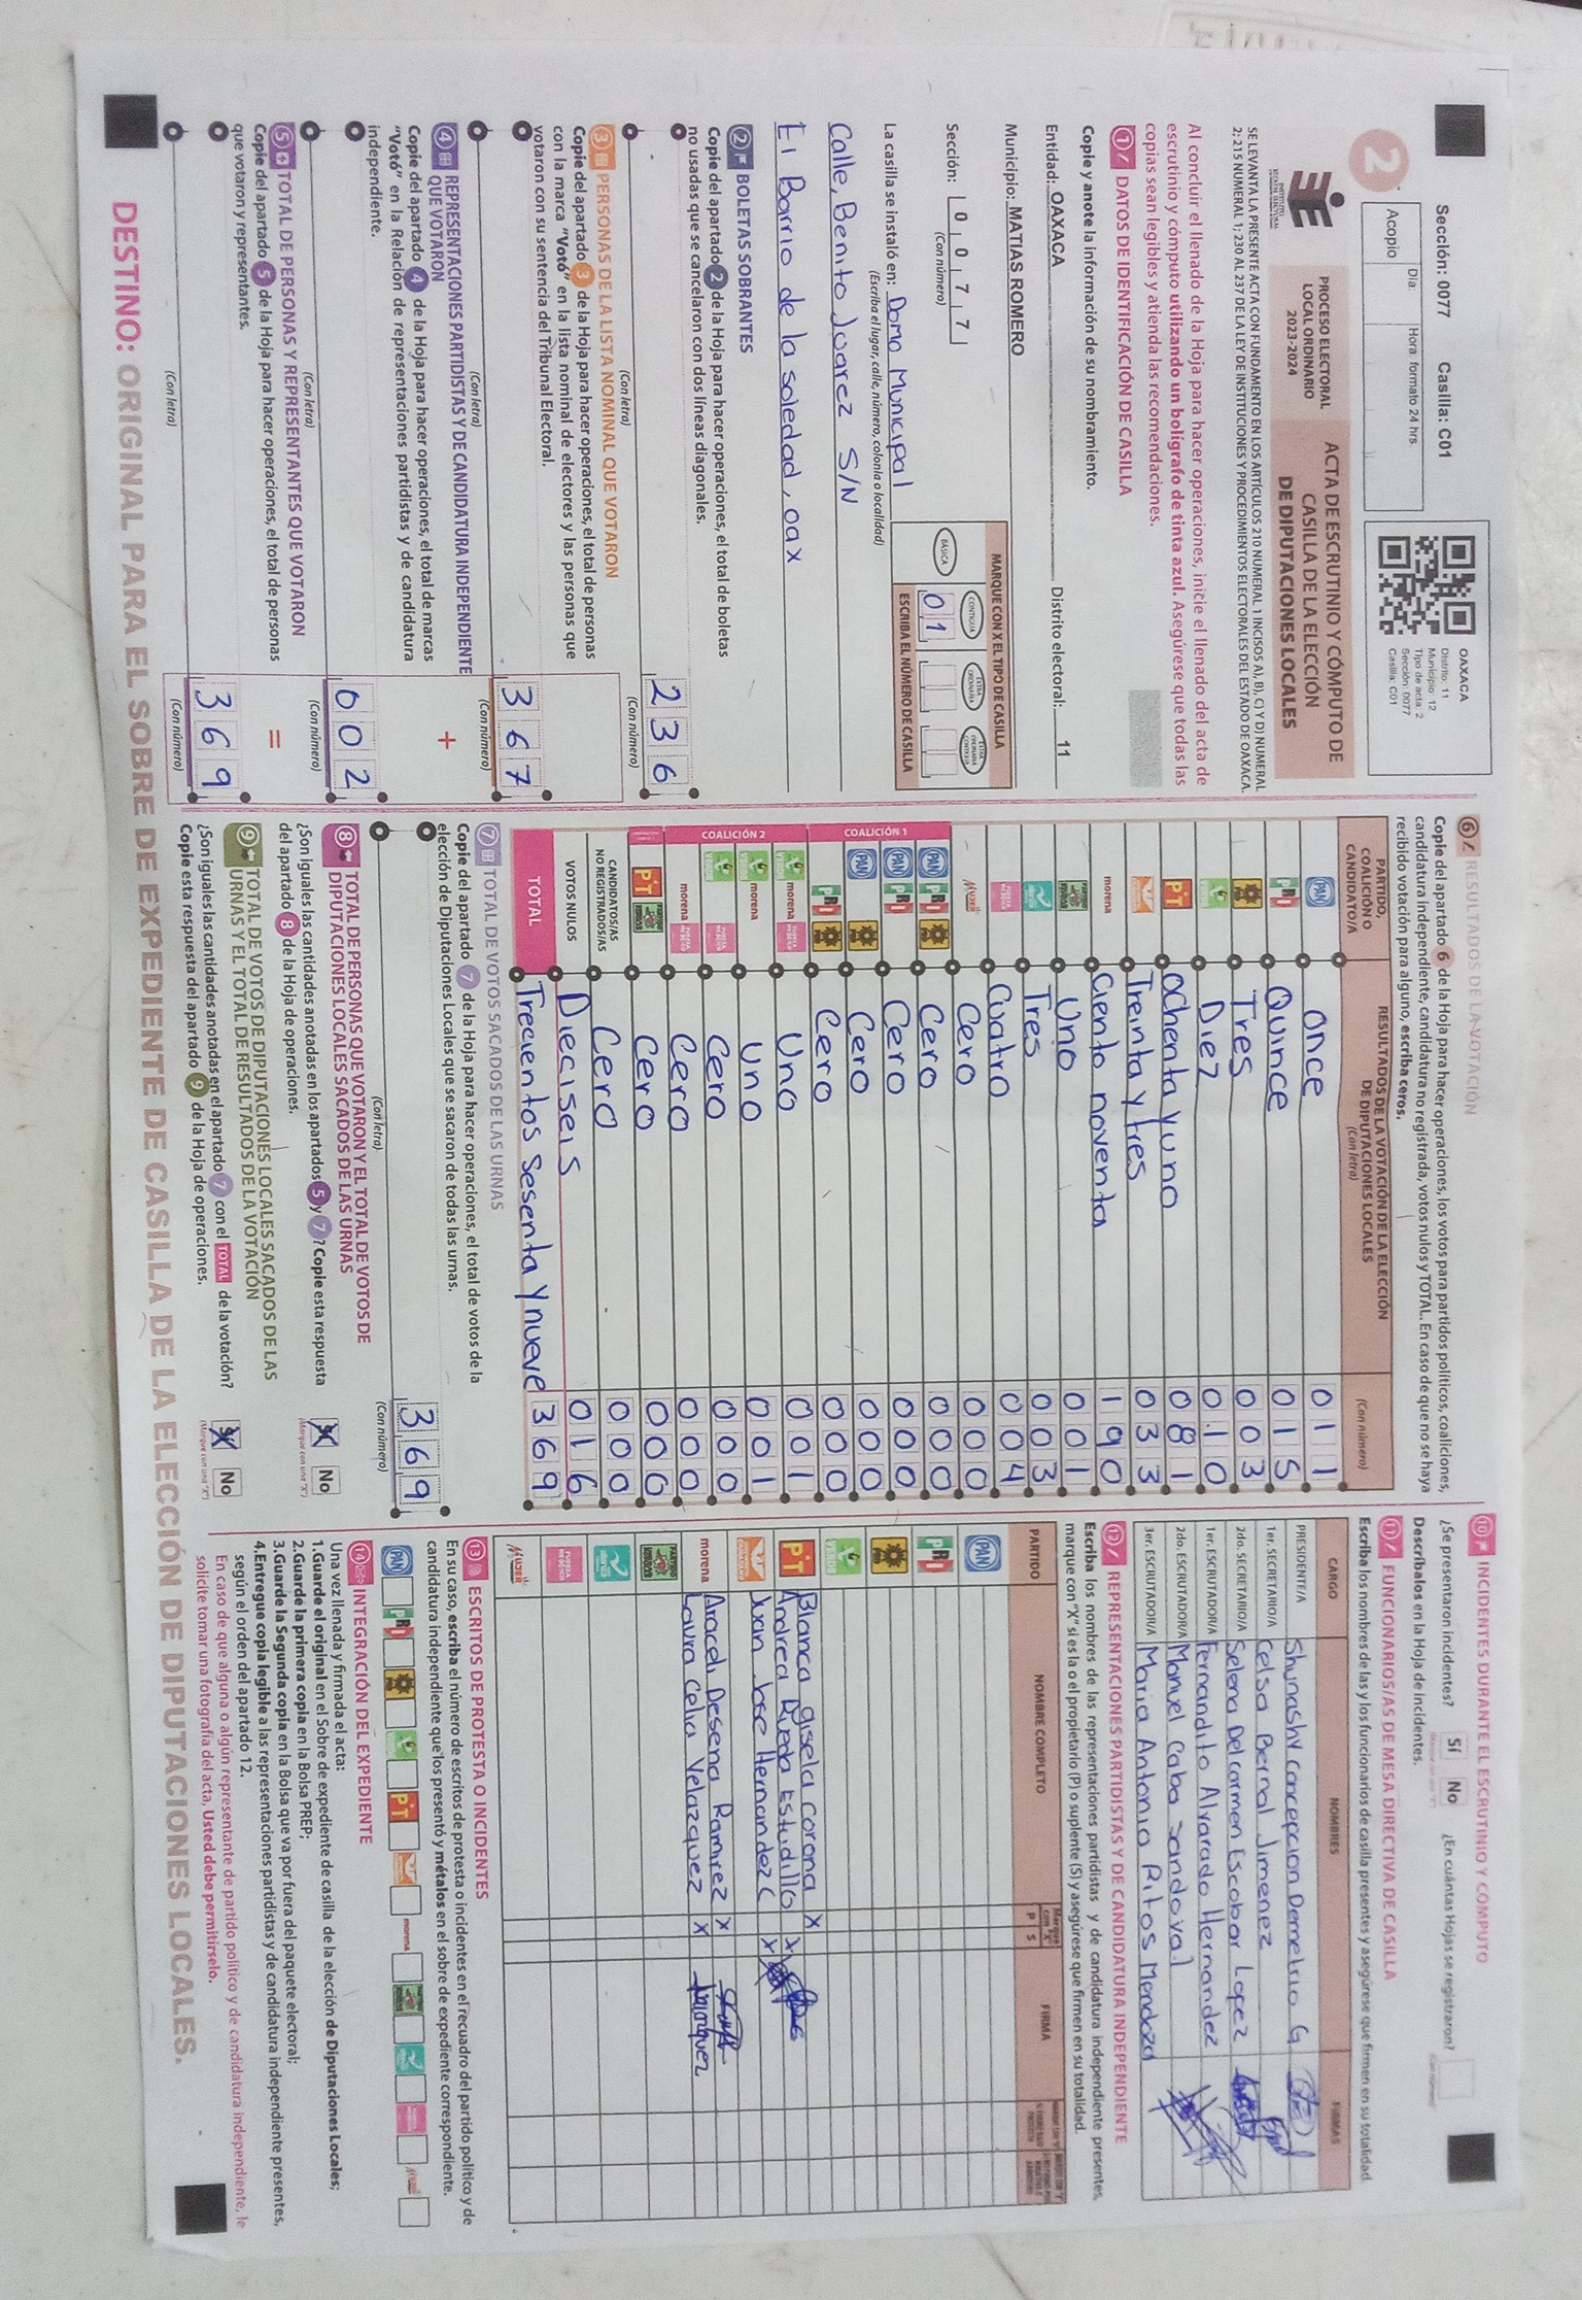 Sección: 0077 Casilla: C01
2
Día: Hora: formato 24 hrs.
Acopio
OAXACA
Distrito: 11
Municipio: 12
Tipo de acta: 2
Sección: 0077
Casilla: C01
PROCESO ELECTORAL
LOCAL ORDINARIO
2023-2024
ACTA DE ESCRUTINIO Y CÓMPUTO DE
CASILLA DE LA ELECCIÓN
DE DIPUTACIONES LOCALES
SE LEVANTA LA PRESENTE ACTA CON FUNDAMENTO EN LOS ARTÍCULOS 210 NUMERAL 1 INCISOS A), B), C) Y D) NUMERAL
2; 215 NUMERAL 1; 230 AL 237 DE LA LEY DE INSTITUCIONES Y PROCEDIMIENTOS ELECTORALES DEL ESTADO DE OAXACA.
Al concluir el llenado de la Hoja para hacer operaciones, inicie el llenado del acta de
escrutinio y cómputo utilizando un bolígrafo de tinta azul. Asegúrese que todas las
copias sean legibles y atienda las recomendaciones.
1 DATOS DE IDENTIFICACIÓN DE CASILLA
Copie y anote la información de su nombramiento.
Entidad: OAXACA Distrito electoral: 11
Municipio: MATIAS ROMERO
Sección: 0 0 7 7
(Con número)
MARQUE CON X EL TIPO DE CASILLA
BÁSICA CONTIGUA
0 1
ESCRIBA EL NÚMERO DE CASILLA
La casilla se instaló en: Domo Municipal
(Escriba el lugar, calle, número, colonia o localidad)
Calle, Benito Juarez S/N
El Barrio de la soledad, oax
2 BOLETAS SOBRANTES
Copie del apartado 2 de la Hoja para hacer operaciones, el total de boletas
no usadas que se cancelaron con dos líneas diagonales.
2 3 6
(Con letra) (Con número)
3 PERSONAS DE LA LISTA NOMINAL QUE VOTARON
Copie del apartado 3 de la Hoja para hacer operaciones, el total de personas
con la marca "Votó" en la lista nominal de electores y las personas que
votaron con su sentencia del Tribunal Electoral.
3 6 7
(Con letra) (Con número)
4 REPRESENTACIONES PARTIDISTAS Y DE CANDIDATURA INDEPENDIENTE
QUE VOTARON
+
Copie del apartado 4 de la Hoja para hacer operaciones, el total de marcas
"Votó" en la Relación de representaciones partidistas y de candidatura
independiente.
0 0 2
(Con letra) (Con número)
5 TOTAL DE PERSONAS Y REPRESENTANTES QUE VOTARON
=
Copie del apartado 5 de la Hoja para hacer operaciones, el total de personas
que votaron y representantes.
3 6 9
(Con letra) (Con número)
6 RESULTADOS DE LA VOTACIÓN
Copie del apartado 6 de la Hoja para hacer operaciones, los votos para partidos políticos, coaliciones,
candidatura independiente, candidatura no registrada, votos nulos y TOTAL. En caso de que no se haya
recibido votación para alguno, escriba ceros.
PARTIDO,
COALICIÓN O
CANDIDATO/A
RESULTADOS DE LA VOTACIÓN DE LA ELECCIÓN
DE DIPUTACIONES LOCALES
(Con letra)
(Con número)
PAN once 0 1 1
PRI Quince 0 1 5
Tres 0 0 3
VERDE Diez 0 1 0
PT ochenta y uno 0 8 1
Treinta y tres 0 3 3
morena Ciento noventa 1 9 0
Uno 0 0 1
Tres 0 0 3
Cuatro 0 0 4
MUJER Cero 0 0 0
COALICIÓN 1
PAN PRI Cero 0 0 0
PAN PRI Cero 0 0 0
PAN Cero 0 0 0
PRI Cero 0 0 0
COALICIÓN 2
VERDE morena Uno 0 0 1
VERDE morena Uno 0 0 1
VERDE Cero 0 0 0
morena Cero 0 0 0
PT Cero 0 0 0
CANDIDATOS/AS
NO REGISTRADOS/AS Cero 0 0 0
VOTOS NULOS Dieciseis 0 1 6
TOTAL Trecientos Sesenta y nueve 3 6 9
7 TOTAL DE VOTOS SACADOS DE LAS URNAS
Copie del apartado 7 de la Hoja para hacer operaciones, el total de votos de la
elección de Diputaciones Locales que se sacaron de todas las urnas.
3 6 9
(Con letra) (Con número)
8 TOTAL DE PERSONAS QUE VOTARON Y EL TOTAL DE VOTOS DE
DIPUTACIONES LOCALES SACADOS DE LAS URNAS
¿Son iguales las cantidades anotadas en los apartados 5 y 7? Copie esta respuesta
del apartado 8 de la Hoja de operaciones.
Sí No
9 TOTAL DE VOTOS DE DIPUTACIONES LOCALES SACADOS DE LAS
URNAS Y EL TOTAL DE RESULTADOS DE LA VOTACIÓN
¿Son iguales las cantidades anotadas en el apartado 7 con el TOTAL de la votación?
Copie esta respuesta del apartado 9 de la Hoja de operaciones.
Sí No
10 INCIDENTES DURANTE EL ESCRUTINIO Y CÓMPUTO
¿Se presentaron incidentes? Sí No ¿En cuántas Hojas se registraron?
Descríbalos en la Hoja de incidentes.
11 FUNCIONARIOS/AS DE MESA DIRECTIVA DE CASILLA
Escriba los nombres de las y los funcionarios de casilla presentes y asegúrese que firmen en su totalidad.
CARGO NOMBRES FIRMAS
PRESIDENTE/A Shunashy Concepcion Demetrio G
1er. SECRETARIO/A Celsa Bernal Jimenez
2do. SECRETARIO/A Selena Del carmen Escobar Lopez
1er. ESCRUTADOR/A Fernandito Alvarado Hernandez
2do. ESCRUTADOR/A Manuel Caba Sandoval
3er. ESCRUTADOR/A Maria Antonia Pitos Mendoza
12 REPRESENTACIONES PARTIDISTAS Y DE CANDIDATURA INDEPENDIENTE
Escriba los nombres de las representaciones partidistas y de candidatura independiente presentes,
marque con "X" si es la o el propietario (P) o suplente (S) y asegúrese que firmen en su totalidad.
PARTIDO NOMBRE COMPLETO P S FIRMA
PAN
PRI
VERDE
PT Blanca gisela corona X
Andrea Rueda Estudillo X
Juan Jose Hernandez C X
morena Araceli Desena Ramirez X
Laura Celia Velazquez X
MUJER
13 ESCRITOS DE PROTESTA O INCIDENTES
En su caso, escriba el número de escritos de protesta o incidentes en el recuadro del partido político y de
candidatura independiente que los presentó y métalos en el sobre de expediente correspondiente.
PAN PRI VERDE PT morena
14 INTEGRACIÓN DEL EXPEDIENTE
Una vez llenada y firmada el acta:
1.Guarde el original en el Sobre de expediente de casilla de la elección de Diputaciones Locales;
2.Guarde la primera copia en la Bolsa PREP;
3.Guarde la Segunda copia en la Bolsa que va por fuera del paquete electoral;
4.Entregue copia legible a las representaciones partidistas y de candidatura independiente presentes,
según el orden del apartado 12.
En caso de que alguna o algún representante de partido político y de candidatura independiente, le
solicite tomar una fotografía del acta, Usted debe permitírselo.
DESTINO: ORIGINAL PARA EL SOBRE DE EXPEDIENTE DE CASILLA DE LA ELECCIÓN DE DIPUTACIONES LOCALES.